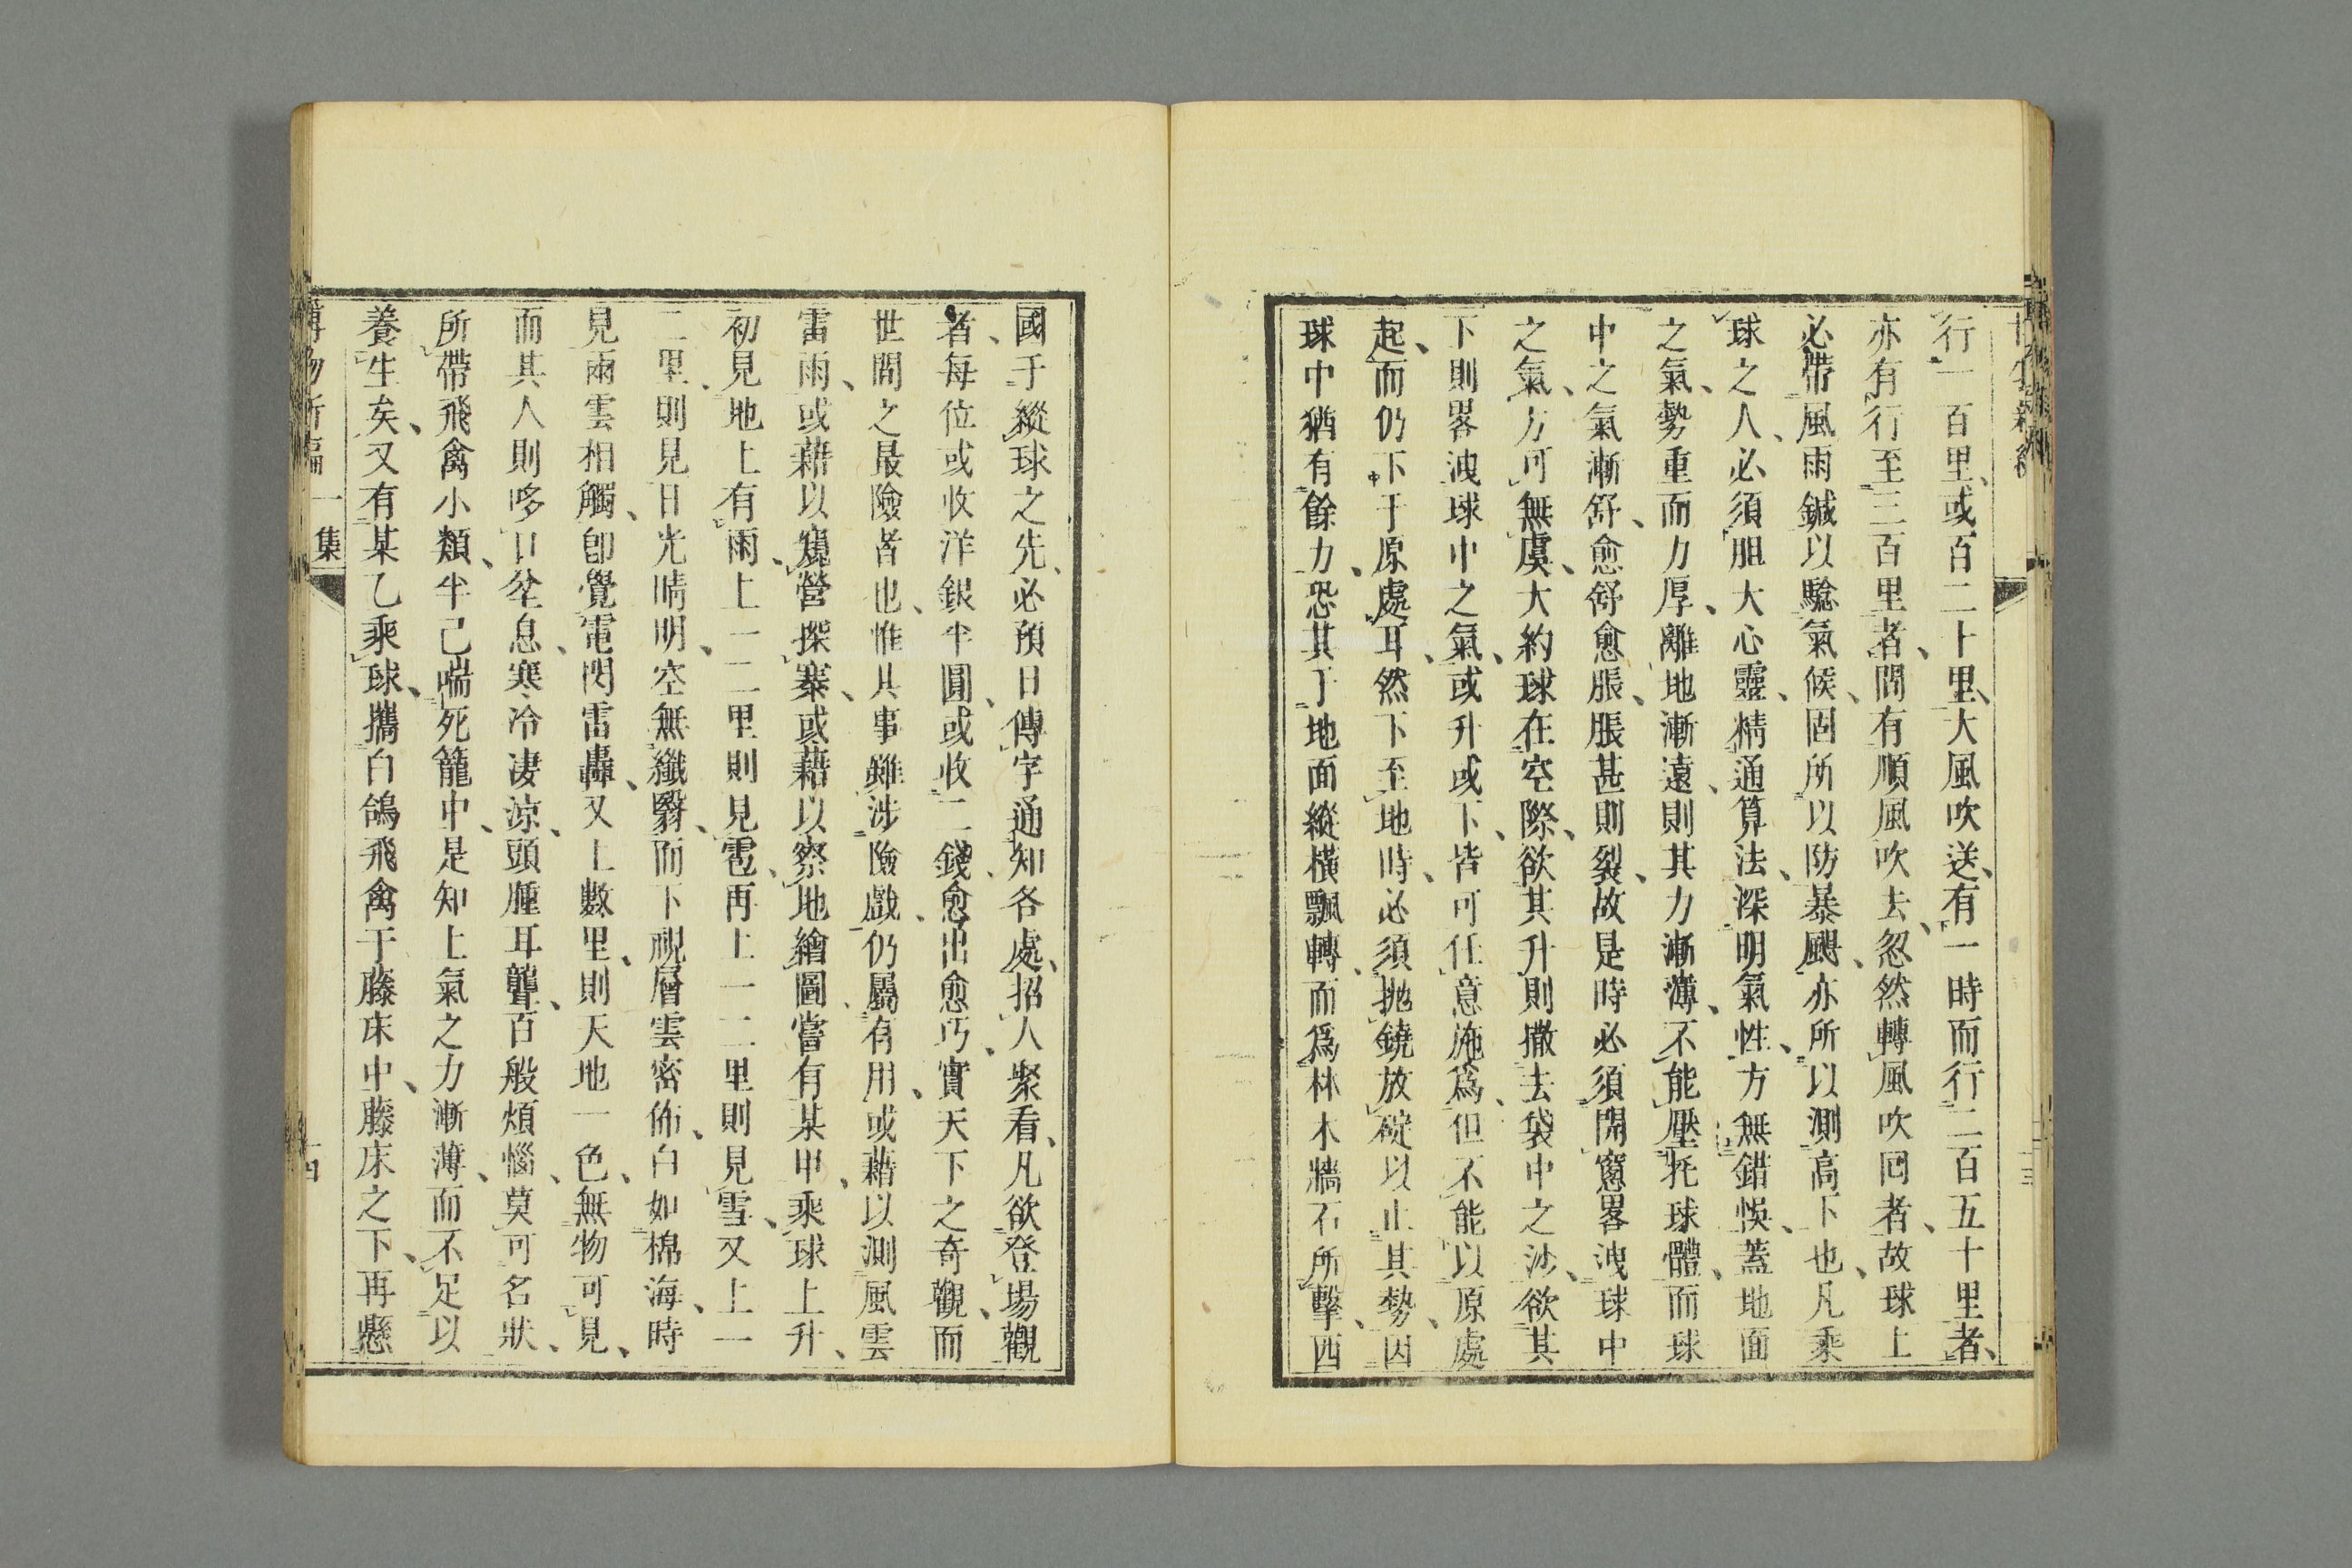 行一百里、或百二十里、大風吹送、有一時而行二百五十里者、
亦有行至三百里者、間有順風吹去、忽然轉風吹回者、故球上
必帶風雨鍼以騐氣候、固所以防暴颶、亦所以測高下也、凡乘
球之人、必須胆大心靈、精通算法、深明氣性、方無錯悞、蓋地面
之氣、勢重而力厚、離地漸遠、則其力漸薄、不能壓托球體、而球
中之氣漸舒、愈舒愈脹、脹甚則裂、故是時必須開窻畧洩球中
之氣、方可無虞、大約球在空際、欲其升則撒去袋中之沙、欲其
下則畧洩球中之氣、或升或下、皆可任意施爲、但不能以原處
起、而仍下于原處耳、然下至地時、必須拋鐃放碇以止其勢、因
球中猶有餘力、恐其于地面縱橫飄轉、而爲林木牆石所擊、西
十三
國于縱球之先、必預日傳字通知各處、招人聚看、凡欲登塲觀
者、每位或收洋銀半圓、或收二錢、愈出愈巧、實天下之奇觀、而
世間之最險者也、惟其事雖涉險戲、仍屬有用、或藉以測風雲
雷雨、或藉以窺營探寨、或藉以察地繪圖、嘗有某甲、乘球上升、
初見地上有雨、上一二里則見雹、再上一二里則見雪、又上一
二里、則見日光晴明、空無纖翳、而下視層雲密佈、白如棉海、時
見雨雲相觸、卽覺電閃雷轟、又上數里、則天地一色、無物可見、
而其人則哆口坌息、寒冷凄涼、頭腫耳聾、百般煩惱、莫可名狀、
所帶飛禽小類、半已喘死籠中、是知上氣之力漸薄、而不足以
養生矣、又有某乙乘球、攜白鴿飛禽于藤床中、藤床之下、再懸
博物新編 一集
十四